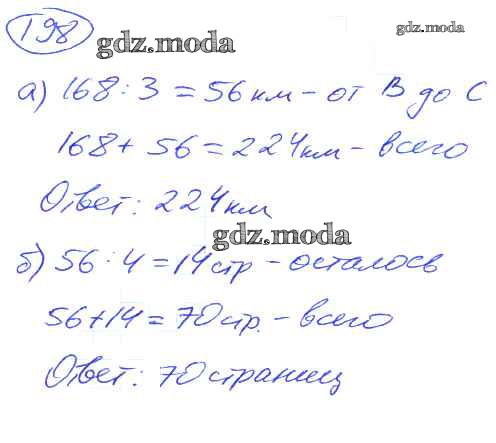 198
gdz.moda
gdz.moda
а) 168 : 3 = 56 км – от В до С
168 + 56 = 224 км – всего
Ответ: 224 км
gdz.moda
б) 56 : 4 = 14 стр – осталось
56 + 14 = 70 стр. – всего
Ответ: 70 страниц